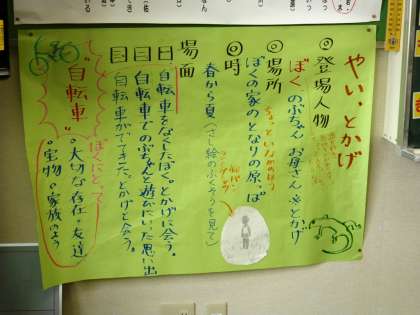 やい、とかげ
◎登場人物
ぼく のぶちゃん お母さん ※とかげ
◎場所
ぼくの家のとなりの原っぱ
◎時
春から夏(さし絵のふくそうを見て)
場面
一 自転車をなくしたぼく。とかげに会う。
二 自転車でのぶちゃんと遊びにいた思い出
三 自転車がでてきた。とかげと会う。
ぼくにとって
"自転車"
。大切な存在 。友達
。宝物 。家族のよう